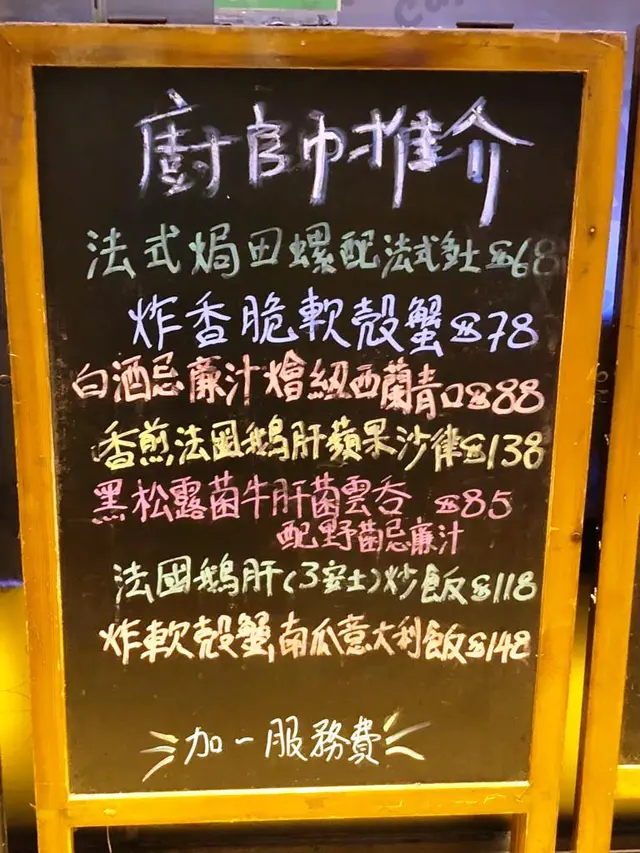 廚師推介
法式焗田螺配法式多士 $68
炸香脆軟殼蟹 $78
白酒忌廉汁燴紐西蘭青口 $88
香煎法國鵝肝蘋果沙律 $138
黑松露菌牛肝菌雲吞 $85
配野菌忌廉汁
法國鵝肝(3安士)炒飯 $118
炸軟殼蟹南瓜意大利飯 $148
加一服務費